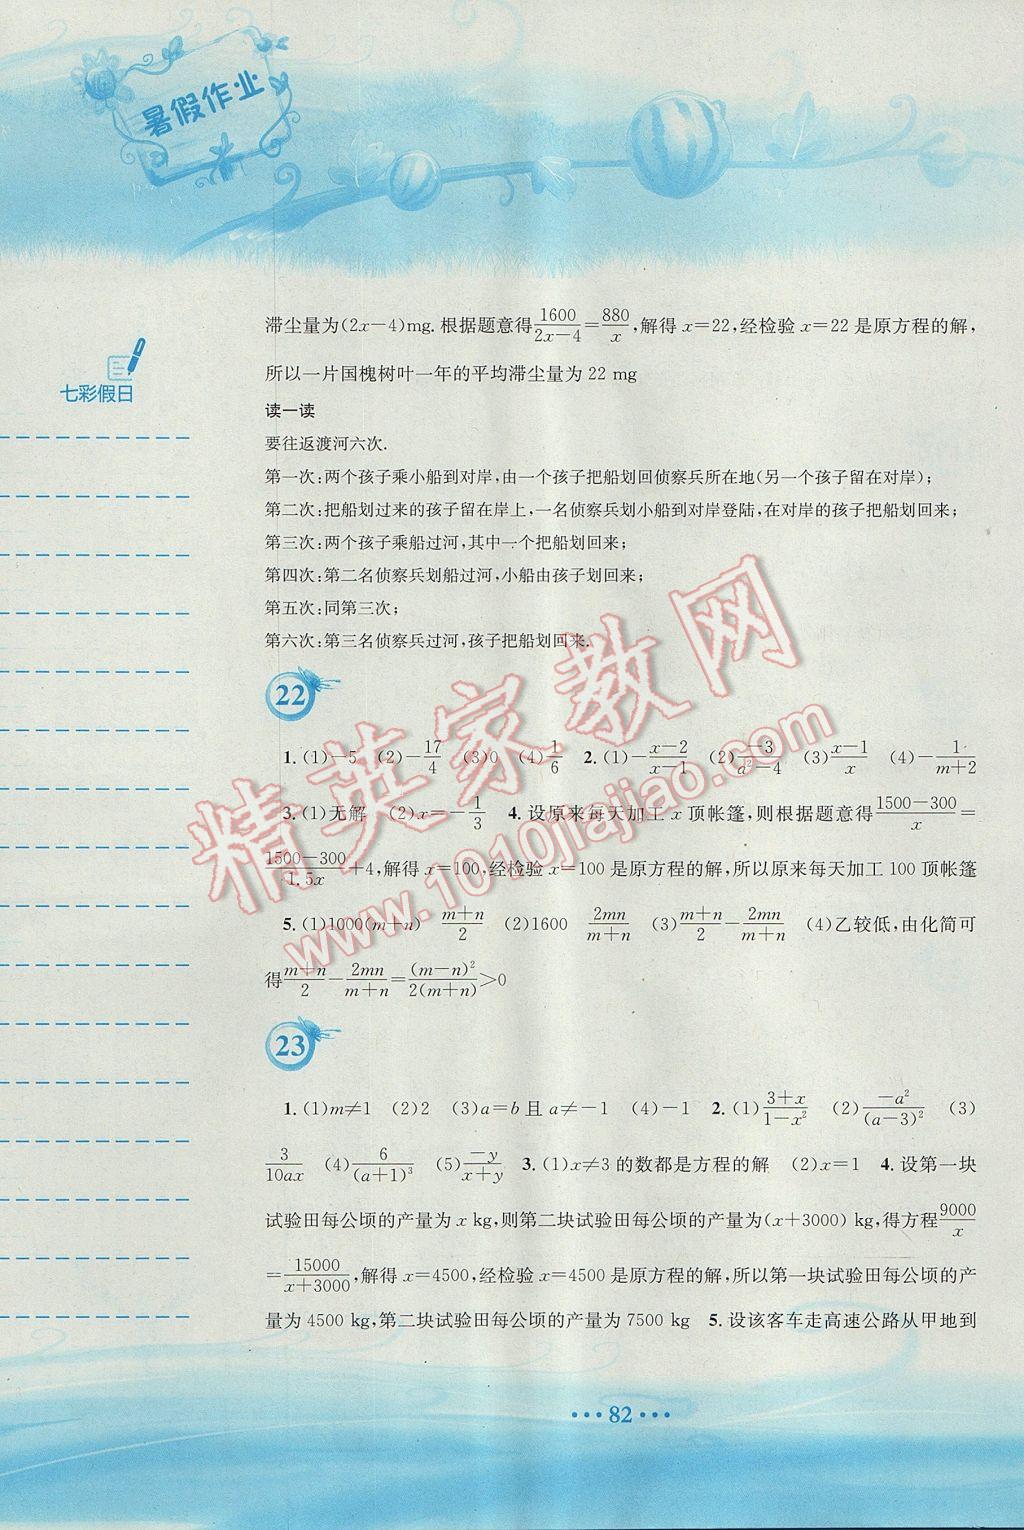 暑假作业
七彩假日
滞尘量为(2x-4)mg.根据题意得1600/(2x-4)=880/x,解得x=22,经检验x=22是原方程的解,
所以一片国槐树叶一年的平均滞尘量为22 mg
读一读
要往返渡河六次.
第一次:两个孩子乘小船到对岸,由一个孩子把船划回侦察兵所在地(另一个孩子留在对岸);
第二次:把船划过来的孩子留在岸上,一名侦察兵划小船到对岸登陆,在对岸的孩子把船划回来;
第三次:两个孩子乘船过河,其中一个把船划回来;
第四次:第二名侦察兵划船过河,小船由孩子划回来;
第五次:同第三次;
第六次:第三名侦察兵过河,孩子把船划回来.
22
1.(1)-5 (2)-17/4 (3)0 (4)1/6 2.(1)-(x-2)/(x-1) (2)-3/(a²-4) (3)(x-1)/x (4)-1/(m+2)
3.(1)无解 (2)x=-1/3 4.设原来每天加工x顶帐篷,则根据题意得(1500-300)/x=
(1500-300)/1.5x+4,解得x=100,经检验x=100是原方程的解,所以原来每天加工100顶帐篷
5.(1)1000(m+n) (m+n)/2 (2)1600 2mn/(m+n) (3)(m+n)/2-2mn/(m+n) (4)乙较低,由化简可
得(m+n)/2-2mn/(m+n)=(m-n)²/2(m+n)>0
23
1.(1)m≠1 (2)2 (3)a=b且a≠-1 (4)-1 2.(1)(3+x)/(1-x²) (2)-a²/(a-3)² (3)
3/10ax (4)6/(a+1)³ (5)-y/(x+y) 3.(1)x≠3的数都是方程的解 (2)x=1 4.设第一块
试验田每公顷的产量为x kg,则第二块试验田每公顷的产量为(x+3000) kg,得方程9000/x
=15000/(x+3000),解得x=4500,经检验x=4500是原方程的解,所以第一块试验田每公顷的产
量为4500 kg,第二块试验田每公顷的产量为7500 kg 5.设该客车走高速公路从甲地到
82
精英家教网
www.1010jiajiao.com